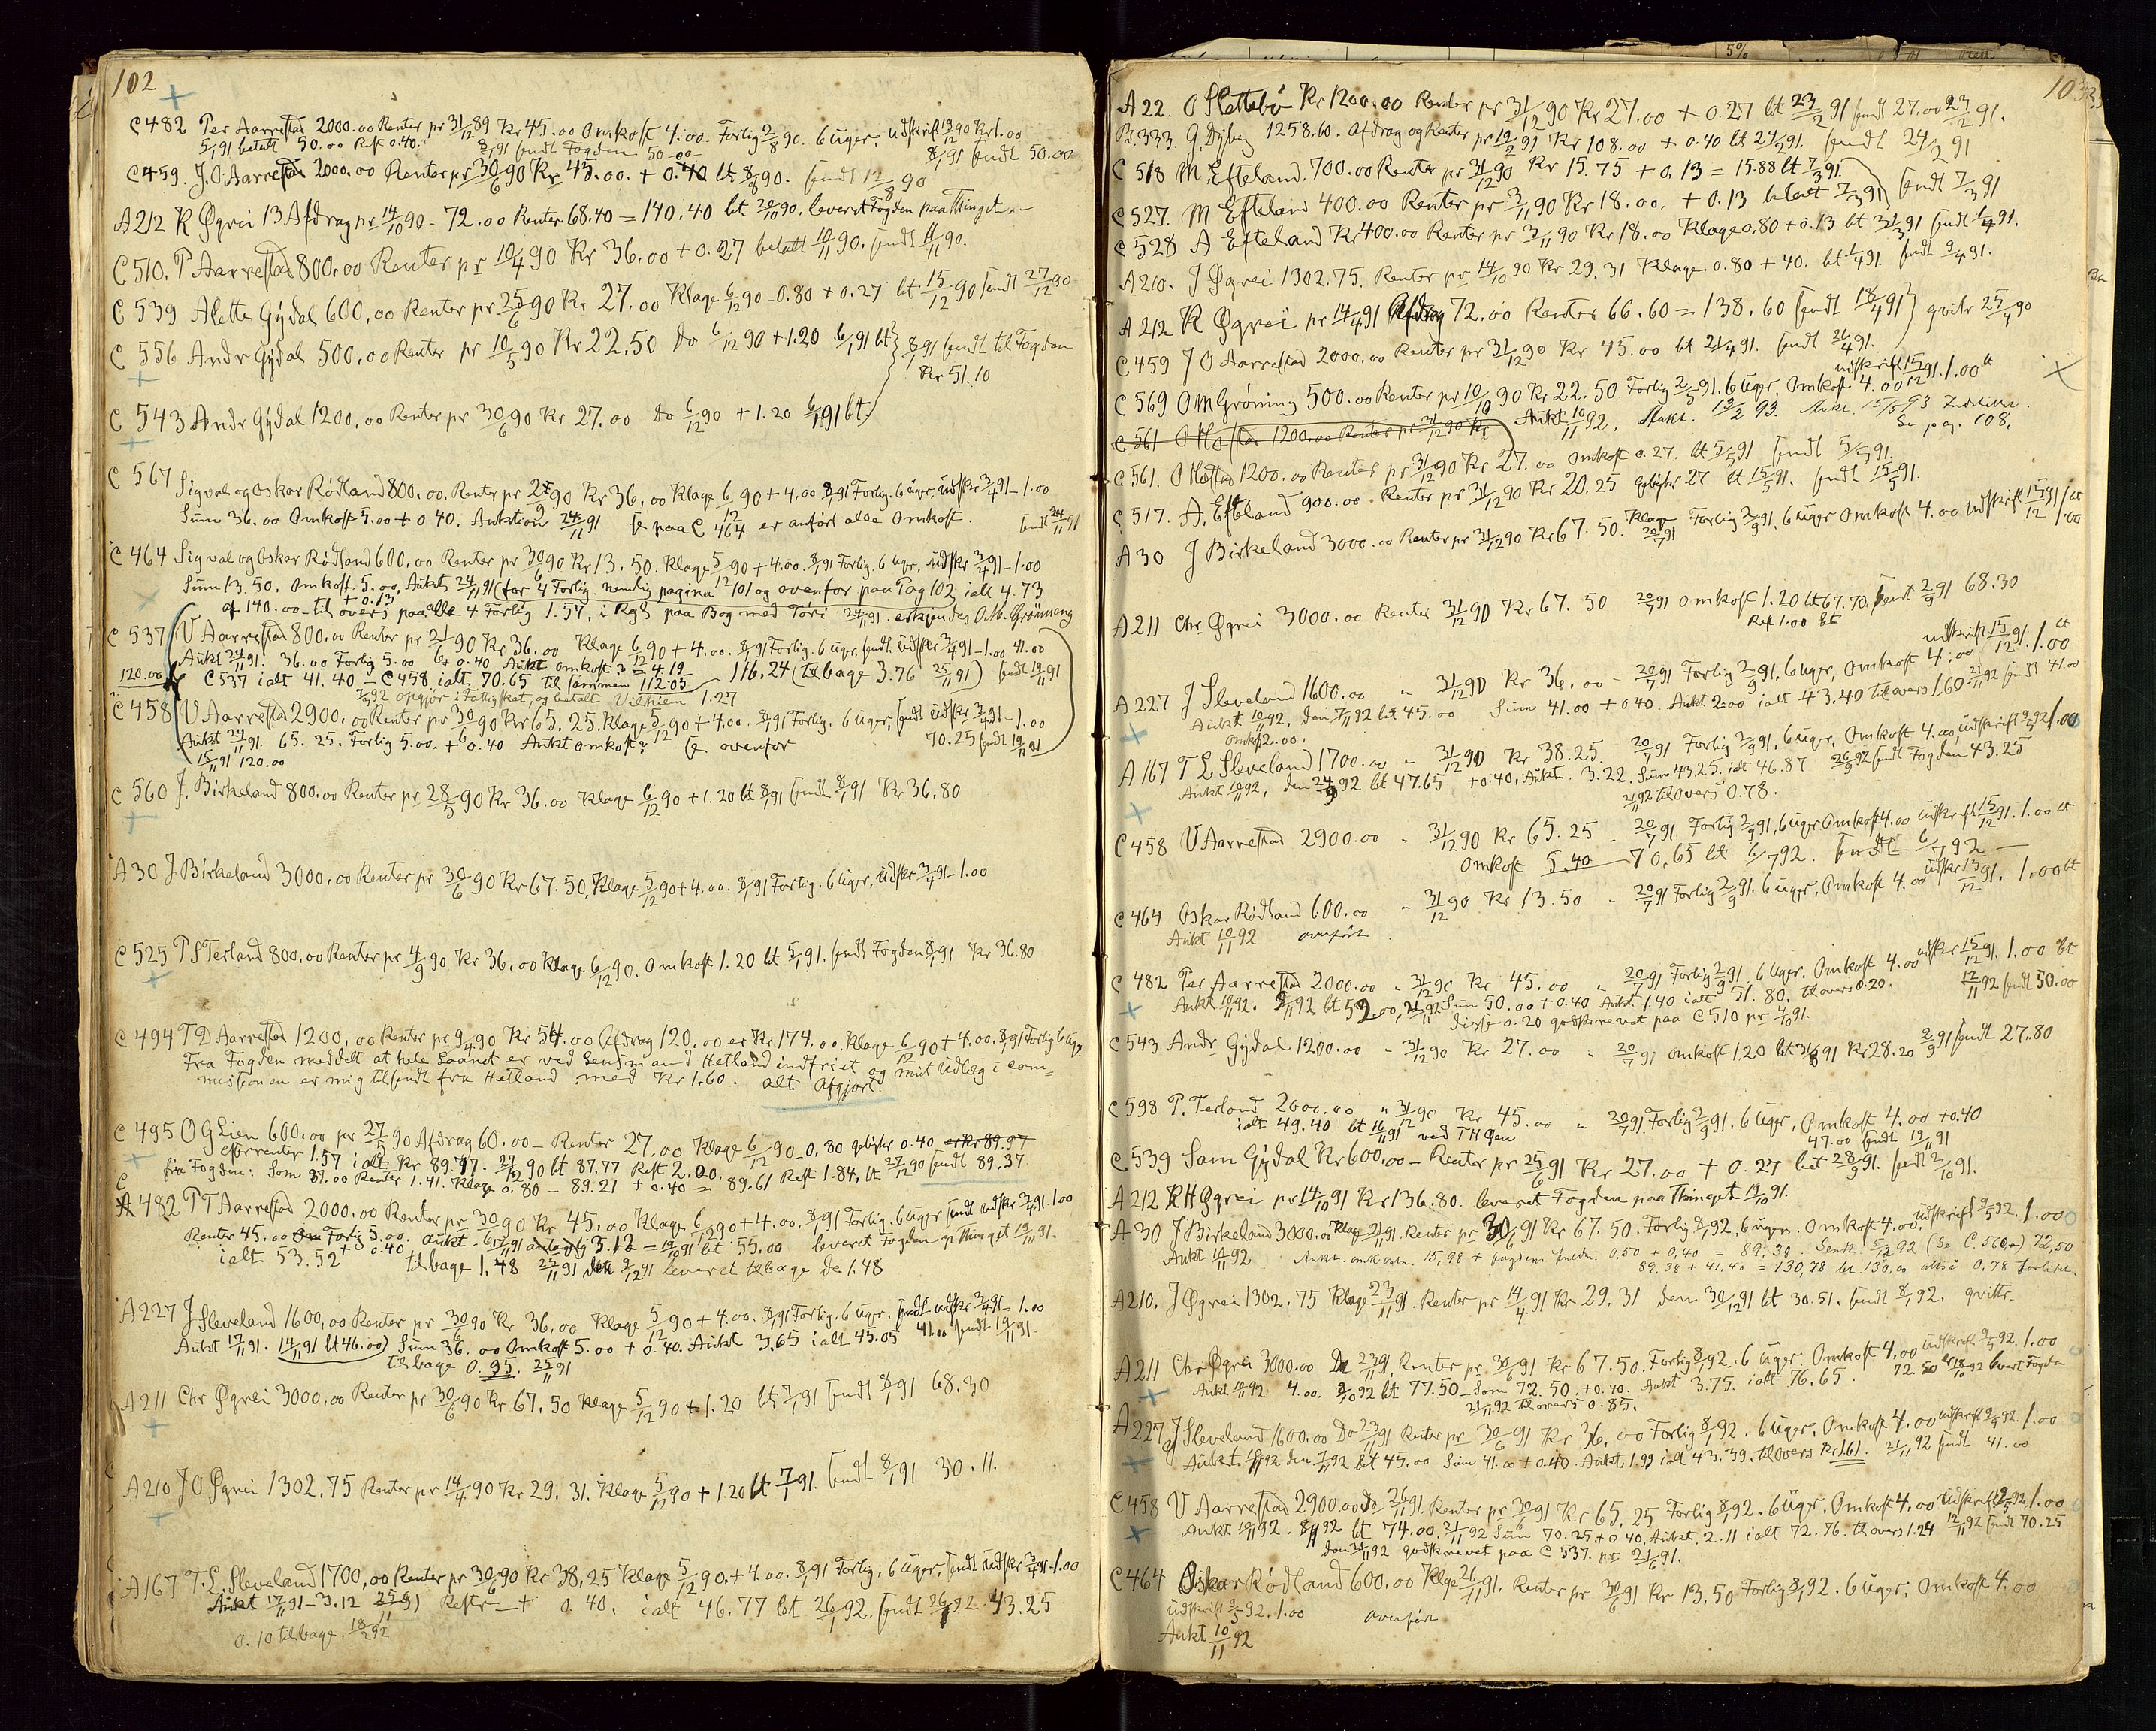 102
C 482 Per Aarrestad 2000.00 Renter pr 31/12 89 Kr 45.00 Omkost 4.00. Forlig 2/8 90. 6 uger, udskrift 19/12 90 Kr 1.00
5/1 91 betalt 50.00 Rest 0.40. 8/1 91 sendt Fogden 50.00 8/1 91 sendt 50.00
C 459. J. O. Aarrestad 2000.00 Renter pr 30/6 90 Kr 45.00. + 0.40 bt 8/8 90. sendt 12/8 90
A 212 R Øgrei 13 Afdrag pr 14/10 90 - 72.00 Renter 68.40 = 140.40 bt 20/10 90. leveret Fogden paa Thinget.-
C 510. P Aarrestad 800.00 Renter pr 10/4 90 Kr 36.00 + 0.27 betalt 10/11 90. sendt 11/11 90.
C 539 Aletta Gydal 600.00 Renter pr 25/6 90 Kr. 27.00 Klage 6/12 90 - 0.80 + 0.27 bt 15/12 90 sendt 27/12 90
C 556 Andr Gydal 500.00 Renter pr 10/5 90 Kr 22.50 Do 6/12 90 + 1.20 6/1 91 bt } 8/1 91 sendt til Fogden
Kr 51.10
C 543 Andr Gydal 1200.00 Renter pr 30/6 90 Kr 27.00 Do 6/12 90 + 1.20 6/1 91 bt.
C 567 Sigval og Oskar Rødland 800.00. Renter pr 90 Kr 36.00 Klage 6/12 90 + 4.00 8/1 91 Forlig. 6 uger, udskr 3/4 91 - 1.00
Sum 36.00 Omkost 5.00 + 0.40. Auktion 24/11 91 Se paa C 464 er anført alle Omkost. sendt 24/11 91
C 464 Sigval og Oskar Rødland 600.00 Renter pr 30/6 90 Kr 13.50. Klage 5/12 90 + 4.00. 8/1 91 Forlig. 6 uger, udskr 3/4 91 - 1.00
Sum 13.50. Omkost. 5.00, Aukt 24/11 91 (for 4 Forlig nemlig pagina 101 og ovenfor paa Pag 102 ialt 4.73
+ 0.13
af 140.00 til overs paa alle 4 Forlig 1.57, i Rgh paa Bog med Tøri 24/11 91. erkjendes O. M. Grønning
C 537 V Aarrestad 800.00 Renter pr 21/6 90 Kr 36.00 Klage 6/12 90 + 4.00. 8/1 91 Forlig. 6 uger, sendt udskr 3/4 91 - 1.00 41.00
Aukt 24/11 91. 36.00 Forlig 5.00 + 0.40 Aukt omkost = 4.19
120.00 C 537 ialt 41.40 - C 458 ialt 70.65 til sammen 112.05 116.24 (tilbage 3.76 25/11 91) sendt 19/11 91
7/3 92 opgjør i Fattigskat, og betalt Vilhien 1.27
C 458 V Aarrestad 2900.00 Renter pr 30/6 90 Kr 65.25. Klage 5/12 90 + 4.00. 8/1 91 Forlig. 6 uger, sendt udskr 3/4 91 - 1.00
Aukt 24/11 91. 65.25. Forlig 5.00. + 0.40 Aukt omkost? Se ovenfor 70.25 sendt 19/11 91
15/11 91 120.00
C 560 J. Birkeland 800.00 Renter pr 28/5 90 Kr 36.00 Klage 6/12 90 + 1.20 bt 8/1 91 sendt 8/1 91 Kr 36.80
A 30 J Birkeland 3000.00 Renter pr 30/6 90 Kr 67.50, Klage 5/12 90 + 4.00. 8/1 91 Forlig. 6 uger, udskr 3/4 91 - 1.00
C 525 P S Terland 800.00 Renter pr 4/9 90 Kr 36.00 Klage 6/12 90. Omkost 1.20 bt 5/1 91. sendt Fogden 8/1 91 Kr 36.80
C 494 T D Aarrestad 1200.00 Renter pr 9/4 90 Kr 54.00 Afdrag 120.00 er Kr 174.00. Klage 6/12 90 + 4.00. 8/1 91 Forlig 6 uger
Fra Fogden meddelt at hele Laanet er ved Lensmand Hetland indfriet og mit Udlæg i com=
missionen er mig tilsendt fra Hetland med Kr 1.60. alt Afgjort.
C 495 O G Lien 600.00 pr 27/5 90 Afdrag 60.00 - Renter 27.00 Klage 6/12 90 - 0.80 gebyhr 0.40 er Kr 89.97
efterrenter 1.57 ialt Kr 89.77. 27/12 90 bt 87.77 Rest 2.00.
fra Fogden: Som 87.00 Renter 1.41. Klage 0.80 - 89.21 + 0.40 = 89.61 Rest 1.84, bt 27/12 90 sendt 89.37
C 482 P T Aarrestad 2000.00 Renter pr 30/6 90 Kr 45.00 Klage 6/12 90 + 4.00. 8/1 91 Forlig. 6 uger sendt udskr 3/4 91. 1.00
Renter 45.00 Om Forlig 5.00. aukt - 17/11 91 3.12 = 19/10 91 bt 55.00 leveret Fogden på Thinget 19/10 91.
ialt 53.52 + 0.40 tilbage 1.48 25/11 91 den 9/12 91 leveret tilbage de 1.48
A 227 J Sleveland 1600.00 Renter pr 30/6 90 Kr 36.00 Klage 5/12 90 + 4.00. 8/1 91 Forlig. 6 uger. sendt udskr 3/4 91 - 1.00
Aukt 17/11 91. 14/11 91 bt 46.00) Sum 36.00 Omkost 5.00 + 0.40. Aukt 3.65 ialt 45.05 41.00 sendt 19/11 91
tilbage 0.95. 25/11 91
A 211 Chr Øgrei 3000.00 Renter pr 30/6 90 Kr 67.50 Klage 5/12 90 + 1.20 bt 7/1 91 sendt 8/1 91 68.30
A 210 J O Øgrei 1302.75 Renter pr 14/4 90 Kr 29.31. Klage 5/12 90 + 1.20 bt 7/1 91. sendt 8/1 91 30.11.
A 167 T. L. Sleveland 1700.00 Renter pr 30/6 90 Kr 38.25 Klage 5/12 90. + 4.00. 8/1 91 Forlig. 6 uger, sendt udskr 3/4 91 - 1.00
Aukt 17/11 91 - 3.12 25/11 91 Restr + 0.40. ialt 46.77 bt 26/1 92. sendt 26/1 92 43.25
0.10 tilbage. 18/2 92
103
A 22 O Slettebø Kr 1200.00 Renter pr 31/12 90 Kr 27.00 + 0.27 bt 23/2 91 sendt 27.00 23/2 91.
B. 333. G. Dybing 1258.60. Afdrag og Renter pr 19/2 91 Kr 108.00 + 0.40 bt 24/2 91. sendt 24/2 91
C 518 M. Efteland. 700.00 Renter pr 31/12 90 Kr 15.75 + 0.13 = 15.88 bt 7/3 91.
C 527. M Efteland 400.00 Renter pr 3/11 90 Kr 18.00. + 0.13 betalt 7/3 91 sendt 7/3 91
C 528 A Efteland Kr 400.00 Renter pr 3/11 90 Kr 18.00 Klage 0.80 + 0.13 bt 31/3 91 sendt 1/4 91.
A 210. J Øgrei 1302.75. Renter pr 14/10 90 Kr 29.31 Klage 0.80 + 40. bt 1/4 91. sendt 9/4 91.
A 212 R Øgrei pr 14/4 91 Afdrag 72.00 Renter 66.60 = 138.60 sendt 18/4 91 } qvitr 25/4 90
C 459 J O Aarrestad 2000.00 Renter pr 31/12 90 Kr 45.00 bt 21/4 91. sendt 21/4 91.
C 569 O M Grøning 500.00 Renter pr 10/10 90 Kr 22.50 Forlig 2/5 91. 6 uger, Omkost 4.00 udskrift 15/12 91. 1.00 bt
Aukt 10/11 92, Aukt. 13/2 93. Aukt. 15/5 93
Se pag. 108.
C 561 O Hostad 1200.00 Renter pr 31/12 90 Kr
C 561. O Hostad 1200.00 Renter pr 31/12 90 Kr 27.00 Omkost 0.27. bt 5/5 91 sendt 5/5 91.
C 517. A. Efteland 900.00 - Renter pr 31/12 90 Kr 20.25 gebyhr 27 bt 15/5 91. sendt 15/5 91.
A 30 J Birkeland 3000.00 Renter pr 31/12 90 Kr 67.50. Klage 20/7 91 Forlig 2/9 91. 6 uger Omkost 4.00 udskrift 15/12 91 1.00 bt
A 211 Chr. Øgrei 3000.00 Renter 31/12 90 Kr 67.50 20/7 91 Omkost 1.20 bt 67.70. sendt 2/9 91 68.30
Rest 1.00 bt
A 227 J Sleveland 1600.00 " 31/12 90 Kr 36.00 - 20/7 91 Forlig 2/9 91. 6 uger, Omkost 4.00 udskrift 15/12 91. 1.00 bt
Aukt 10/11 92, den 7/11 92 bt 45.00 Sum 41.00 + 0.40. Aukt 2.00 ialt 43.40 tilovers 1.60 21/11 92 sendt 41.00
Omkost 2.00.
A 167 T L Sleveland 1700.00 " 31/12 90 Kr 38.25. 20/7 91 Forlig 2/9 91. 6 uger, Omkost 4.00, udskrift 9/5 92 1.00
Aukt 10/11 92, den 24/9 92 bt 47.65 + 0.40. Aukt. 3.22. Sum 43.25. ialt 46.87 26/9 92 sendt Fogden 43.25
21/11 92 tilovers 0.78.
C 458 V Aarrestad 2900.00 - 31/12 90 Kr 65.25 - 20/7 91 Forlig 2/9 91, 6 uger Omkost 4.00 udskrift 15/12 91. 1.00 bt
Omkost 5.40 70.65 bt 6/7 92. sendt 6/7 92 -
C 464 Oskar Rødland 600.00 - 31/12 90 Kr 13.50 - 20/7 91 Forlig 2/9 91. 6 uger, Omkost 4.00 udskr 15/12 91. 1.00 bt
Aukt 10/11 92 overført
C 482 Per Aarrestad 2000.00 " 31/12 90 Kr 45.00 " 20/7 91 Forlig 2/9 91. 6 uger, Omkost 4.00 udskr 15/12 91. 1.00 bt
Aukt 10/11 92. 9/11 92 bt 52.00, 21/11 92 Sum 50.00 + 0.40 Aukt 1.40 ialt 51.80. tilovers 0.20. 12/11 92 sendt 50.00
disse 0.20 godskrevet paa C 510 pr 4/10 91.
C 543 Andr Gydal 1200.00 - 31/12 90 Kr 27.00 " 20/7 91 Omkost 1.20 bt 31/8 91 Kr 28.20 2/9 91 sendt 27.80
C 598 P. Terland 2000.00 " 31/12 90 Kr 45.00 " 20/7 91 Forlig 2/9 91. 6 uger, Omkost 4.00 + 0.40
ialt 49.40 bt 16/11 91 ved T H Øen 47.00 sendt 19/11 91
C 539 Sam Gydal Kr 600.00 - Renter pr 25/6 91 Kr 27.00 + 0.27 bet 28/9 91. sendt 2/10 91.
A 212 R H Øgrei pr 14/10 91 Kr 136.80. leveret Fogden paa Thinget 19/10 91.
A 30 J Birkeland 3000.00 Klage 21/11 91. Renter pr 30/6 91 Kr 67.50. Forlig 8/1 92, 6 uger. Omkost 4.00. udskrift 9/5 92. 1.00
Aukt 10/11 92 Aukt. omkostn. 15,98 + 0,50 + 0,40 = 89,38. Senk. 5/12 92 (Se C. 560) 72,50
89,38 + 41,40 = 130,78 bt. 130,00 altså 0,78 forlidet.
A 210. J Øgrei 1302.75 Klage 23/11 91. Renter pr 14/4 91 Kr 29.31 den 30/12 91 bt 30.51. sendt 8/1 92. qvittr.
A 211 Chr Øgrei 3000.00 Do 23/11 91. Renter pr 30/6 91 Kr 67.50. Forlig 8/1 92. 6 uger. Omkost 4.00 udskrift 9/5 92. 1.00
Aukt 10/11 92 4.00. 9/10 92 bt 77.50 - Som 72.50. + 0.40. Aukt 3.75. ialt 76.65. 72.50 18/10 92 levert Fogden
21/11 92 tilovers 0.85.
A 227 J Sleveland 1600.00 Do 23/11 91 Renter pr 30/6 91 Kr 36.00 Forlig 8/1 92. 6 uger, Omkost 4.00 udskrift 9/5 92. 1.00
Aukt. 10/11 92 den 7/11 92 bt 45.00 Sum 41.00 + 0.40. Aukt 1.99 ialt 43.39. tilovers Kr 1.61. 21/11 92 sendt 41.00
C 458 V Aarrestad 2900.00 Do 26/11 91. Renter pr 30/6 91 Kr 65.25 Forlig 8/1 92. 6 uger. Omkost 4.00 udskrift 9/5 92. 1.00
Aukt 10/11 92. 8/11 92 bt 74.00. 21/11 92 Sum 70.25 + 0.40. Aukt. 2.11 ialt 72.76. tilovers 1.24 12/11 92 sendt 70.25
den 21/11 92 godskrevet paa C 537 pr 21/6 91.
C 464 Oskar Rødland 600.00 Klage 21/11 91. Renter pr 30/6 91 Kr 13.50 Forlig 8/1 92. 6 uger, Omkost 4.00
udskrift 9/5 92. 1.00 overført
Aukt 10/11 92